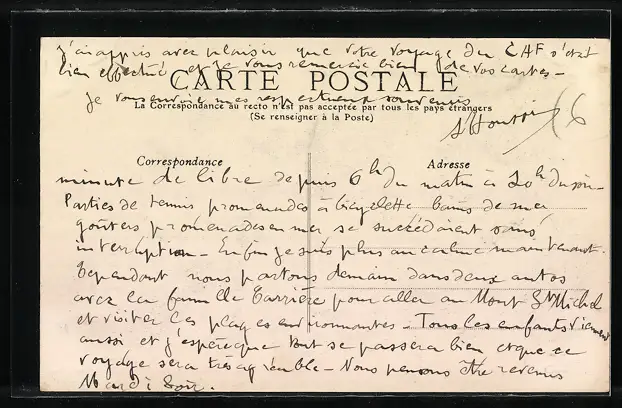 j'ai appris avec plaisir que votre voyage du CAF s'était
bien effectué et je vous remercie bien de vos cartes -
CARTE POSTALE
Je vous envoie mes respectueux souvenirs
La Correspondance au recto n'est pas acceptée par tous les pays étrangers
(Se renseigner à la Poste)
Correspondance
Adresse
minute de libre depuis 6h du matin à 10h du soir -
Parties de tennis promenades à bicyclette bains de mer
goûters promenades en mer se succédaient sans
interruption - Enfin je suis plus au calme maintenant -
Cependant nous partons demain dans deux autos
avec la famille Carrière pour aller au Mont St Michel
et visiter les plages environnantes - Tous les enfants viennent
aussi et j'espère que tout se passera bien et que ce
voyage sera très agréable - Nous pensons être revenus
Mardi Soir.